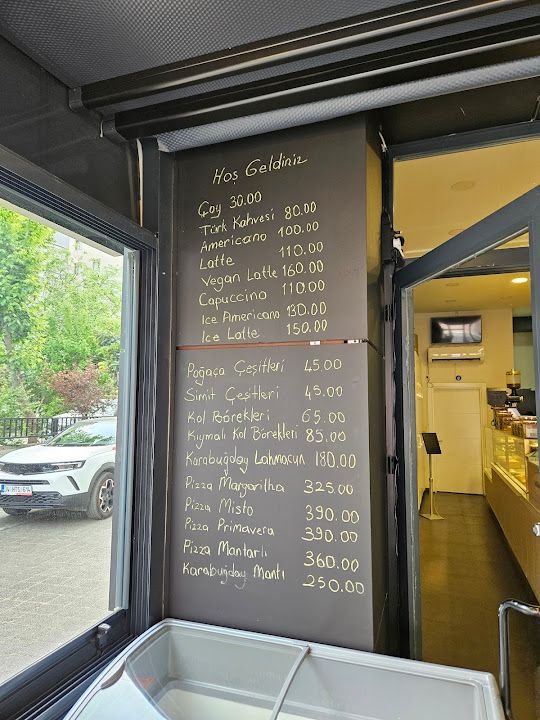 Hoş Geldiniz
Çay 30.00
Türk Kahvesi 80.00
Americano 100.00
Latte 110.00
Vegan Latte 160.00
Capuccino 110.00
Ice Americano 130.00
Ice Latte 150.00
Poğaça Çeşitleri 45.00
Simit Çeşitleri 45.00
Kol Börekleri 65.00
Kıymalı Kol Börekleri 85.00
Karabuğday Lahmacun 180.00
Pizza Margaritha 325.00
Pizza Misto 390.00
Pizza Primavera 390.00
Pizza Mantarlı 360.00
Karabuğday Mantı 250.00